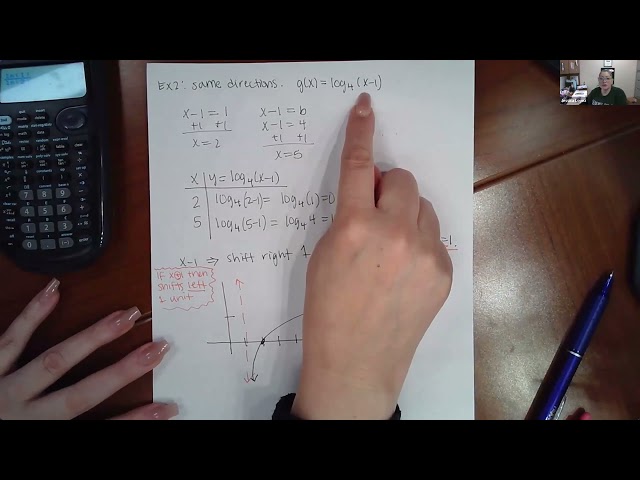 EX2: same directions. g(x) = log₄(x-1)
x-1 = 1
+1 +1
x = 2
x-1 = b
x-1 = 4
+1 +1
x = 5
x | y = log₄(x-1)
2 | log₄(2-1) = log₄(1) = 0
5 | log₄(5-1) = log₄4 = 1
x-1 ⇒ shift right 1
=1.
If x⊕1 then
shifts left
1 unit